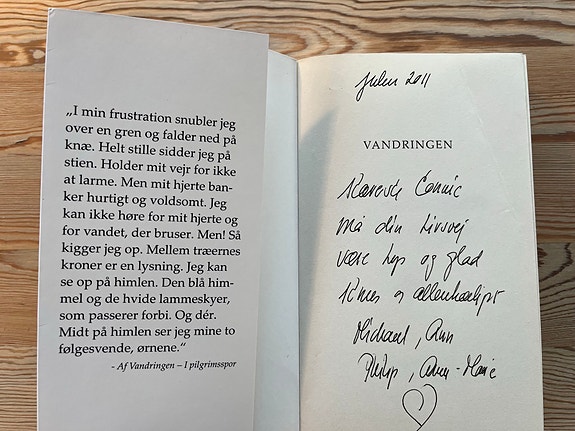 „I min frustration snubler jeg
over en gren og falder ned på
knæ. Helt stille sidder jeg på
stien. Holder mit vejr for ikke
at larme. Men mit hjerte ban-
ker hurtigt og voldsomt. Jeg
kan ikke høre for mit hjerte og
for vandet, der bruser. Men! Så
kigger jeg op. Mellem træernes
kroner er en lysning. Jeg kan
se op på himlen. Den blå him-
mel og de hvide lammeskyer,
som passerer forbi. Og dér.
Midt på himlen ser jeg mine to
følgesvende, ørnene.“
- Af Vandringen – I pilgrimsspor
Julen 2011
VANDRINGEN
Kæreste
må din livsvej
være lys og glad
Knus allerkærligst
Michael, Ann
Philip, Anne-Marie